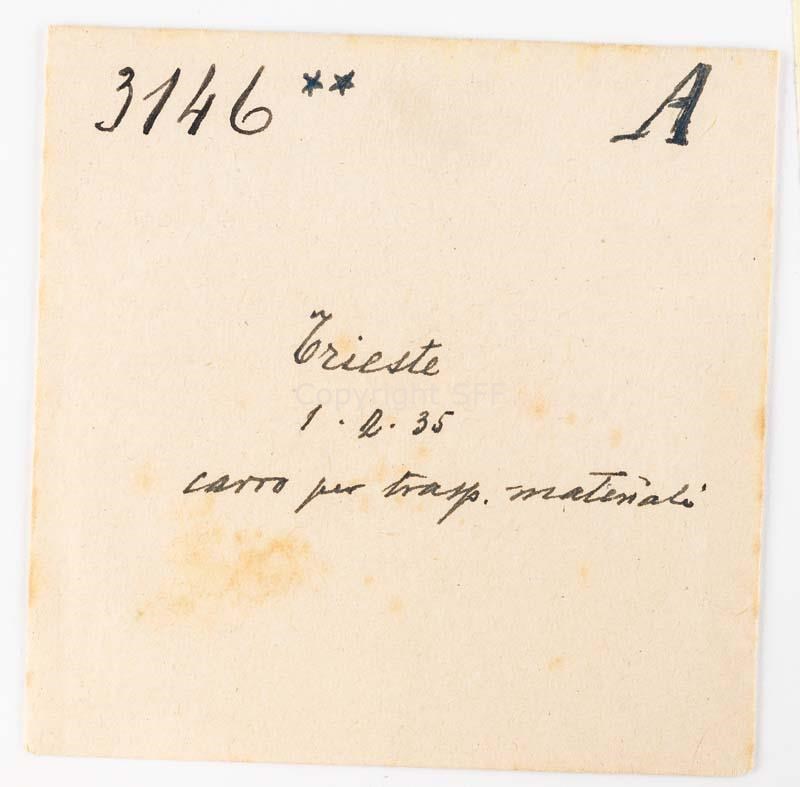 3146 ** A
Trieste
Copyright SFF
1.2.35
carro per trasp. materiali